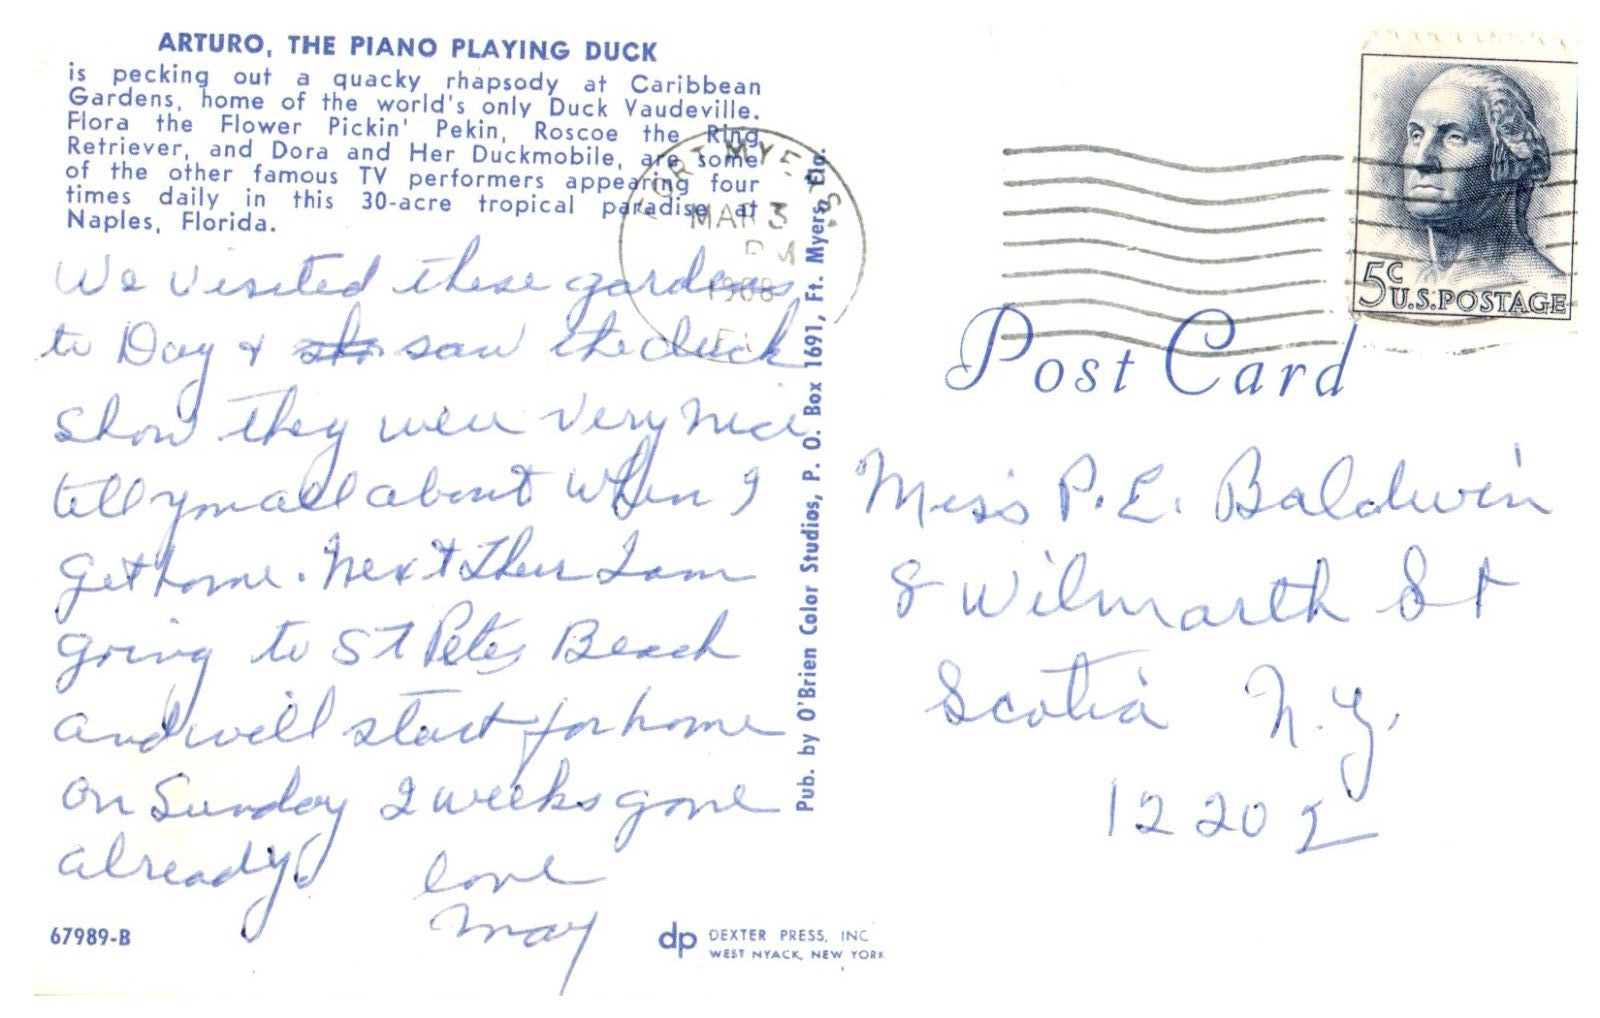 ARTURO, THE PIANO PLAYING DUCK
is pecking out a quacky rhapsody at Caribbean
Gardens, home of the world's only Duck Vaudeville.
Flora the Flower Pickin' Pekin, Roscoe the Ring
Retriever, and Dora and Her Duckmobile, are some
of the other famous TV performers appearing four
times daily in this 30-acre tropical paradise at
Naples, Florida.
We visited these gardens
to Day & saw the duck
show they were very nice
tell you all about when I
get home. Next Thur I am
going to St Petes Beach
and will start for home
on Sunday 2 weeks gone
already.
love
May
67989-B
dp DEXTER PRESS, INC
WEST NYACK, NEW YORK
Pub. by O'Brien Color Studios, P. O. Box 1691, Ft. Myers, Fla.
FORT MYERS
MAR 3
PM
1968
5c U.S.POSTAGE
Post Card
Miss P. E. Baldwin
8 Wilmarth St
Scotia N.Y.
12202